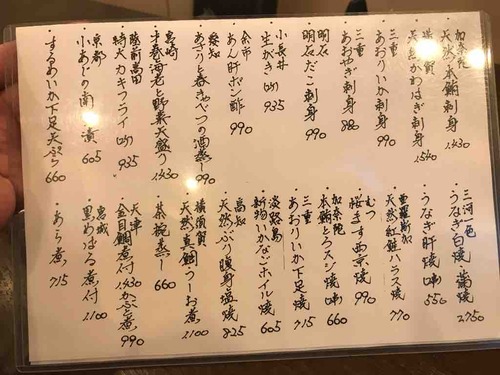 加奈陀
天然本鮪刺身 1,430
横須賀
天然かわはぎ刺身 1,540
三重
あおりいか刺身 990
三重
あおやぎ刺身 880
明石
明石だこ刺身 990
小長井
生がき 935
余市
あん肝ポン酢 990
愛知
あさりと春きゃべつの酒蒸 990
宮崎
才巻海老と野菜天盛り 1,430
陸前高田
特大カキフライ 935
京都
小あじの南ばん漬 605
するめいか下足天ぷら 660
三河一色
うなぎ白焼・蒲焼 2,750
うなぎ肝焼 550
天然紅鮭ハラス焼 770
むつ
桜ます西京焼 990
加奈陀
本鮪とろスジ焼 660
三重
あおりいか下足焼 715
淡路島
新物いかなごホイル焼 605
高知
天然ぶり腹身塩焼 825
横須賀
天然真鯛うしお煮 1,100
茶碗蒸し 660
天津
金目鯛煮付 1,430 かぶと煮 990
宮城
黒めばる煮付 1,100
あら煮 715